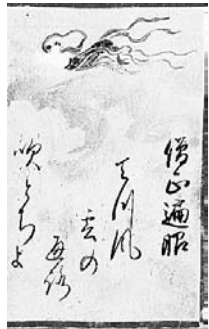 僧正遍昭
天川風
雲の
通路
吹とちよ